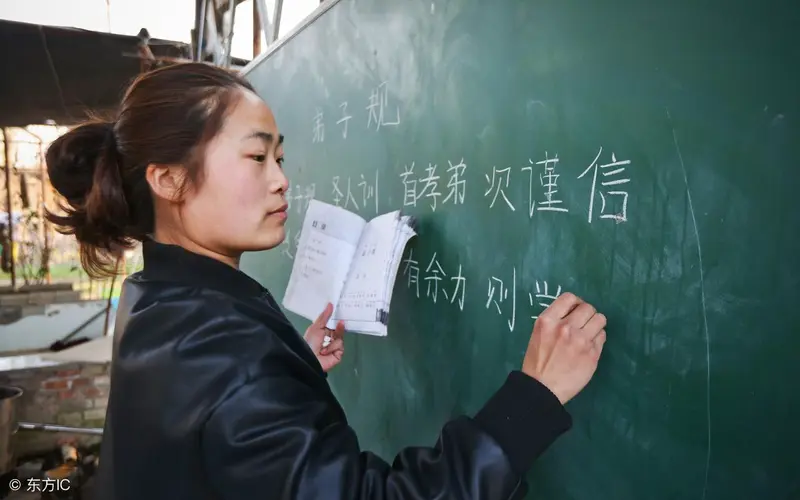 弟子规
子规 圣人训 首孝弟 次谨信
有余力 则学
© 东方IC